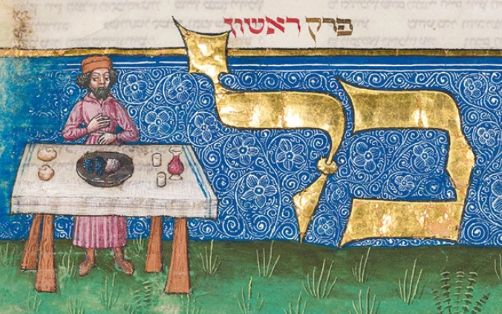 פרק ראשון
כל